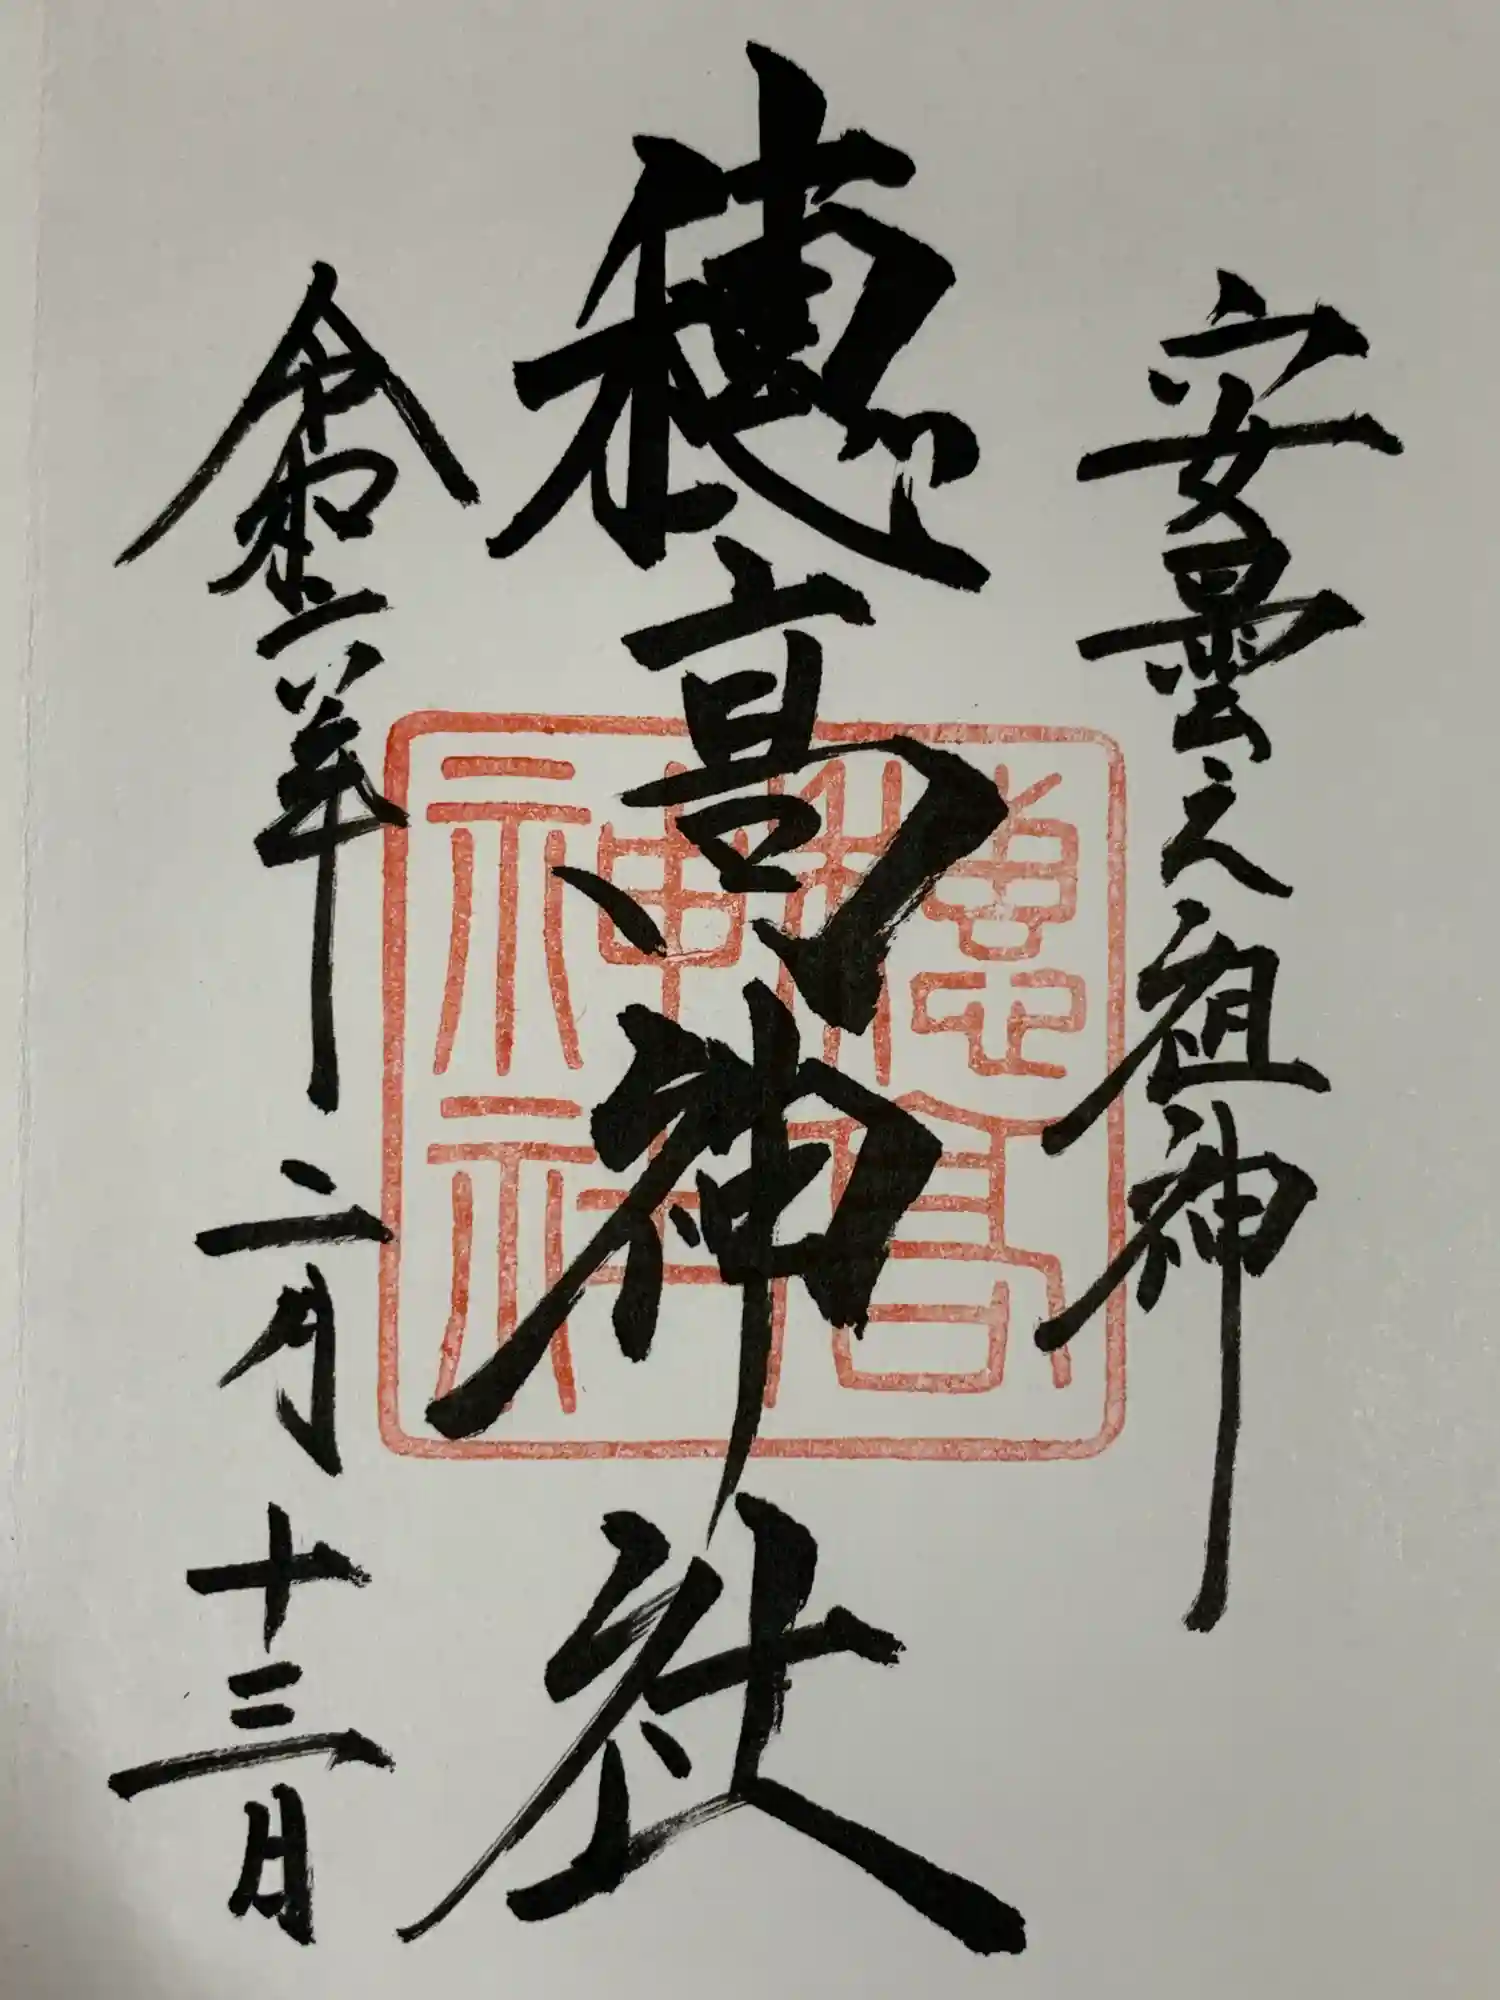 安曇之祖神
穂高神社
令和二年二月十三日
穗高神社